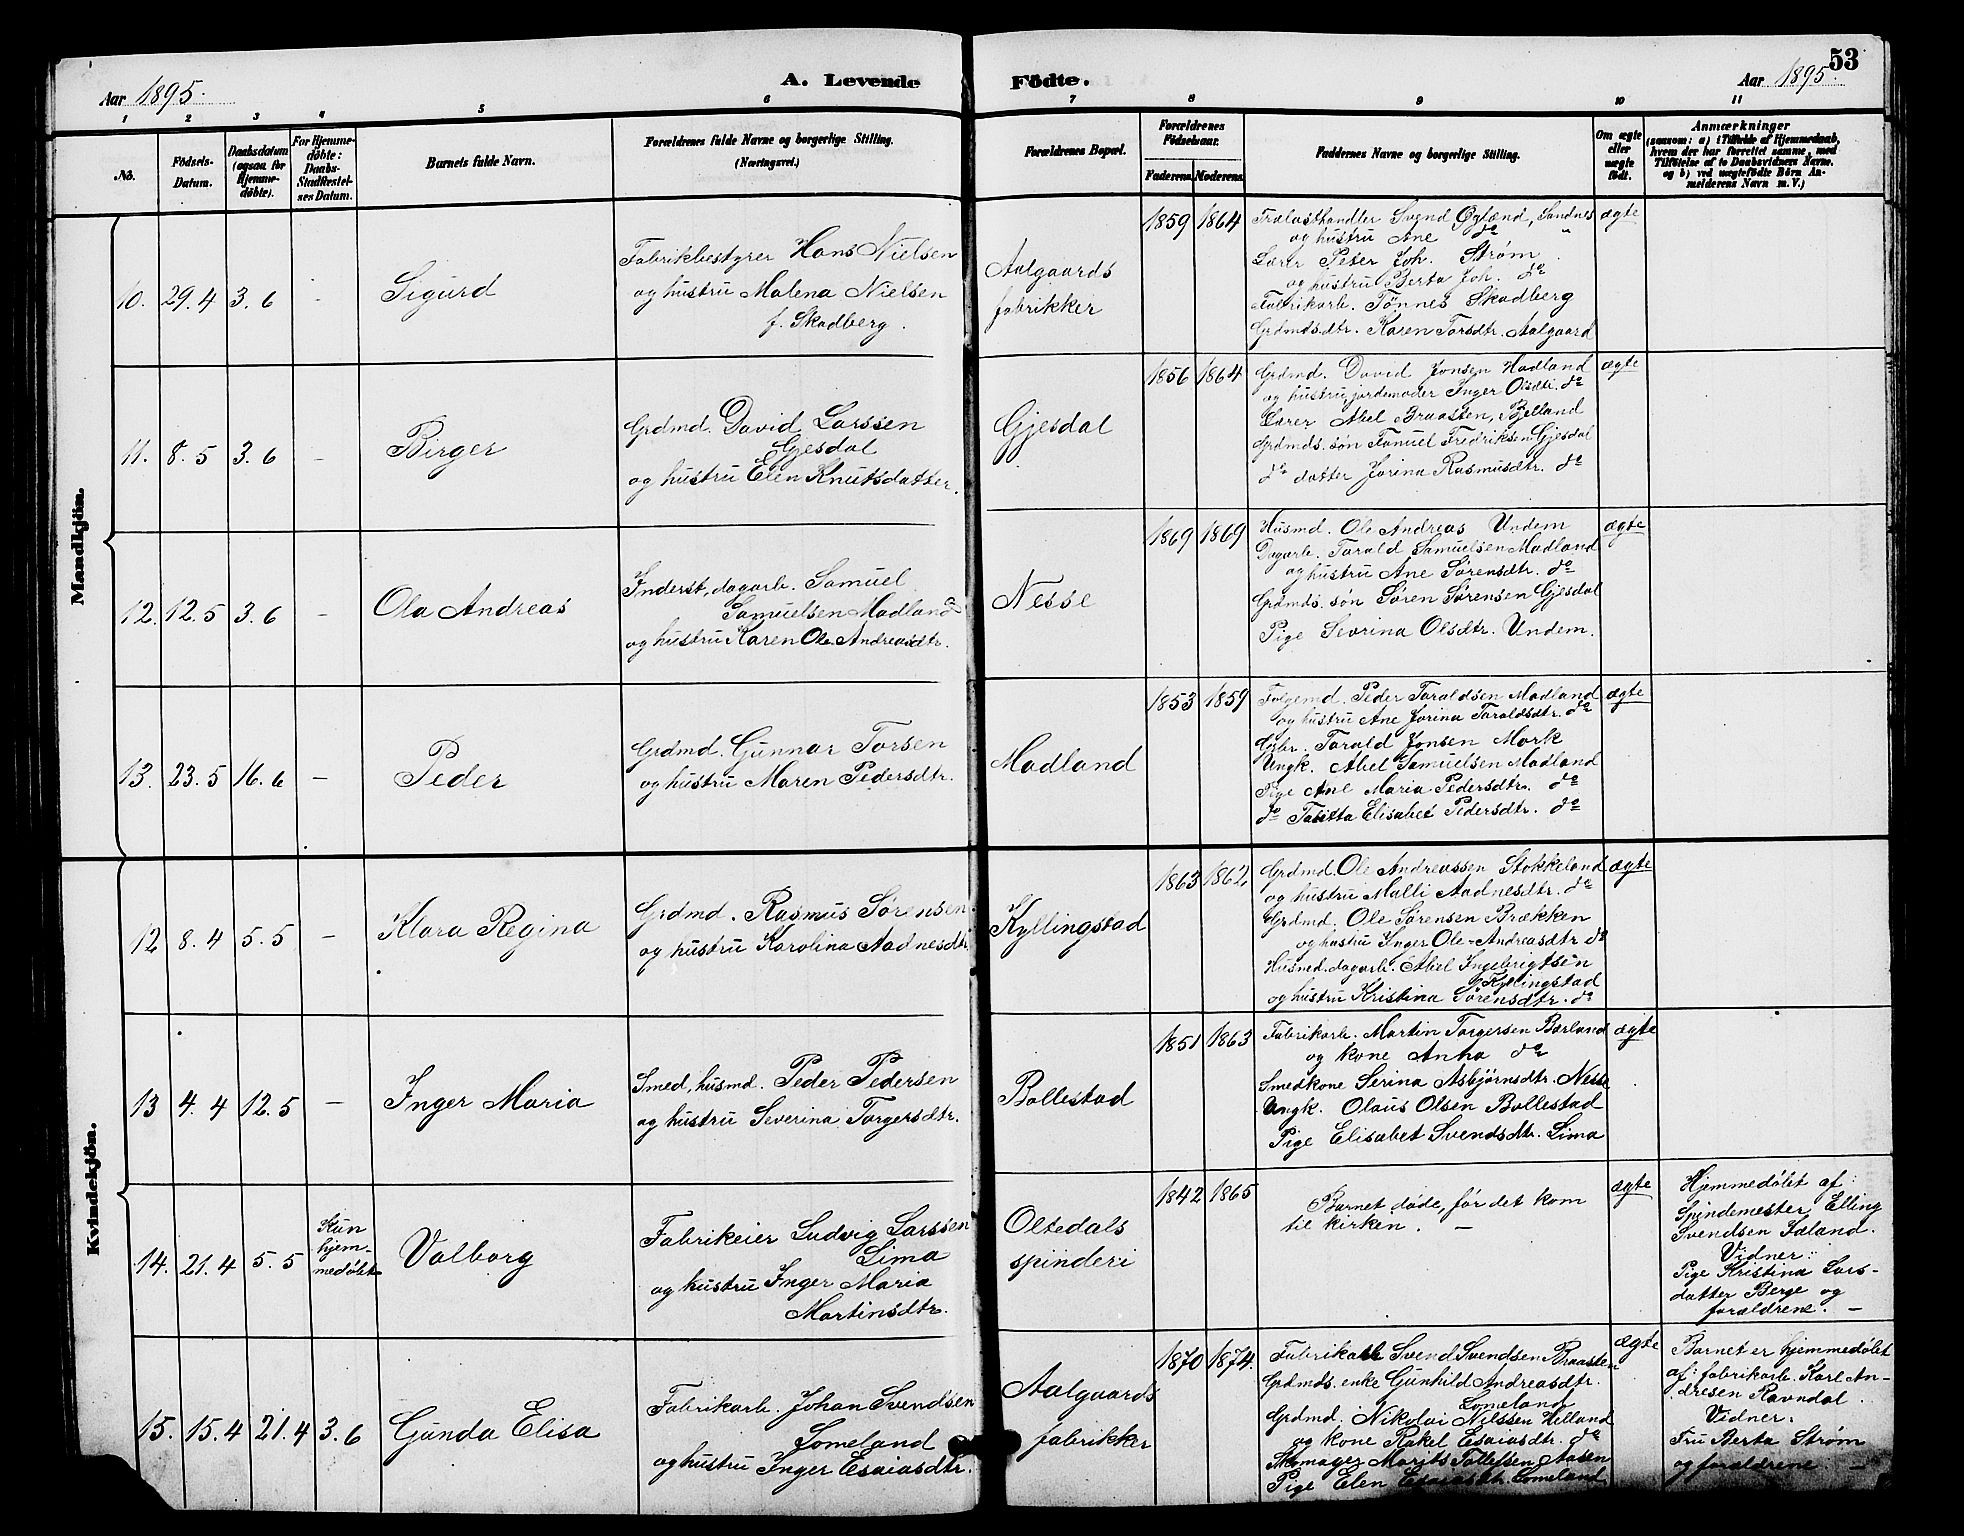 53
Aar 1895.
A. Levende
Födte.
Aar 1895.
1 2 3 4 5 6 7 8 9 10 11
No.
Födsels-
Datum.
Daabsdatum
(ogsaa for
Hjemme-
döbte).
For Hjemme-
döbte:
Daabs-
Stadfæstel-
ses Datum.
Barnets fulde Navn.
Forældrenes fulde Navne og borgerlige Stilling.
(Næringsvei.)
Forældrenes Bopæl.
Forældrenes
Födselsaar.
Faderens. Moderens.
Faddernes Navne og borgerlige Stilling.
Om ægte
eller
uægte
födt.
Anmærkninger
(saasom: a) i Tilfælde af Hjemmedaab,
hvem der har forrettet samme, med
Tilföielse af to Daabsvidners Navne.
og b) ved uægtefödte Börn An-
melderens Navn m. V.)
Mandkjön.
10. 29.4 3.6 -
Sigurd
Fabrikbestyrer Hans Nielsen
og hustru Malena Nielsen
f. Skadberg.
Aalgaards
fabrikker
1859 1864
Trælasthandler Svend Øglænd, Sandnes
og hustru Ane do "
Lærer Peter Joh. Strøm
og hustru Berta Joh. do
Fabrikarb. Tönnes Skadberg
Grdmds.dtr. Karen Torsdtr. Aalgaard
ægte
11. 8.5 3.6 -
Birger
Grdmd. David Larssen
Gjesdal
og hustru Elen Knutsdatter.
Gjesdal
1856 1864
Grdmd. David Jonsen Madland
og hustru, jordemoder Inger Olsdtr. do
Lærer Abel Braasten, Bjelland
Grdmds. søn Tønuel Fredriksen Gjesdal
do datter Jorina Rasmusdtr. do
ægte
12. 12.5 3.6 -
Ola Andreas
Inderst, dagarb. Samuel
Samuelsen Madland
og hustru Karen Ole Andreasdtr.
Nesse
1869 1869
Husmd. Ole Andreas Undem
Dagarb. Tarald Samuelsen Madland
og hustru Ane Sørensdtr. do
Grdmds. søn Søren Sørensen Gjesdal
Pige Sevrina Olsdtr. Undem.
ægte
13. 23.5 16.6 -
Peder
Grdmd. Gunnar Torsen
og hustru Maren Pedersdtr.
Madland
1853 1859
Folgemd. Peder Taraldsen Madland
og hustru Ane Jorina Taraldsdtr. do
Gbr. Tarald Jonsen Mork
Ungk. Abel Samuelsen Madland
Pige Ane Maria Pedersdtr. do
do Tabitta Elisabet Pedersdtr. do
ægte
Kvindekjön.
12 8.4 5.5 -
Klara Regina
Grdmd. Rasmus Sørensen
og hustru Karolina Aadnesdtr.
Kyllingstad
1863 1862
Grdmd. Ole Andreassen Stokkeland
og hustru Malli Aadnesdtr. do
Grdmd. Ole Sørensen Brækken
og hustru Inger Ole-Andreasdtr do
Husmd. dagarb. Abel Ingebrigtsen
Kyllingstad
og hustru Kristina Sørensdtr. do
ægte
13 4.4 12.5 -
Inger Maria
Smed, husmd. Peder Pedersen
og hustru Severina Torgersdtr.
Bollestad
1851 1863
Fabrikarb. Martin Torgersen Bærland
og kone Anna do
Smedkone Serina Asbjørnsdtr. Nesse
Ungk. Olaus Olsen Bollestad
Pige Elisabet Svendsdtr. Lima
ægte
14. 21.4 5.5
Kun
hjem-
medøbt
Valborg
Fabrikeier Ludvig Larssen
Lima
og hustru Inger Maria
Martinsdtr.
Oltedals
spinderi
1842 1865
Barnet døde, før det kom
til kirken. -
ægte
Hjemmedøbt af:
Spindemester Elling
Svendsen Idland.
Vidner:
Pige Kristina Lars-
datter Berge og
forældrene. -
15. 15.4 21.4 3.6
Gunda Elisa
Fabrikarb. Johan Svendsen
Lomeland
og hustru Inger Esaiasdtr.
Aalgaards
fabrikker
1870 1874.
Fabrikarb Svend Svendsen Braasten
Grdmds. enke Gunhild Andreasdtr.
Lomeland
Grdmd. Nikolai Nilssen Helland
og kone Rakel Esaiasdtr. do
Skomager Marits Tollefsen Aasen
Pige Elen Esaiasdtr. Lomeland
ægte
Barnet er hjemmedøbt
af: fabrikarb. Karl An-
dresen Ravndal.
Vidner:
Fru Berta Strøm
og forældrene. -